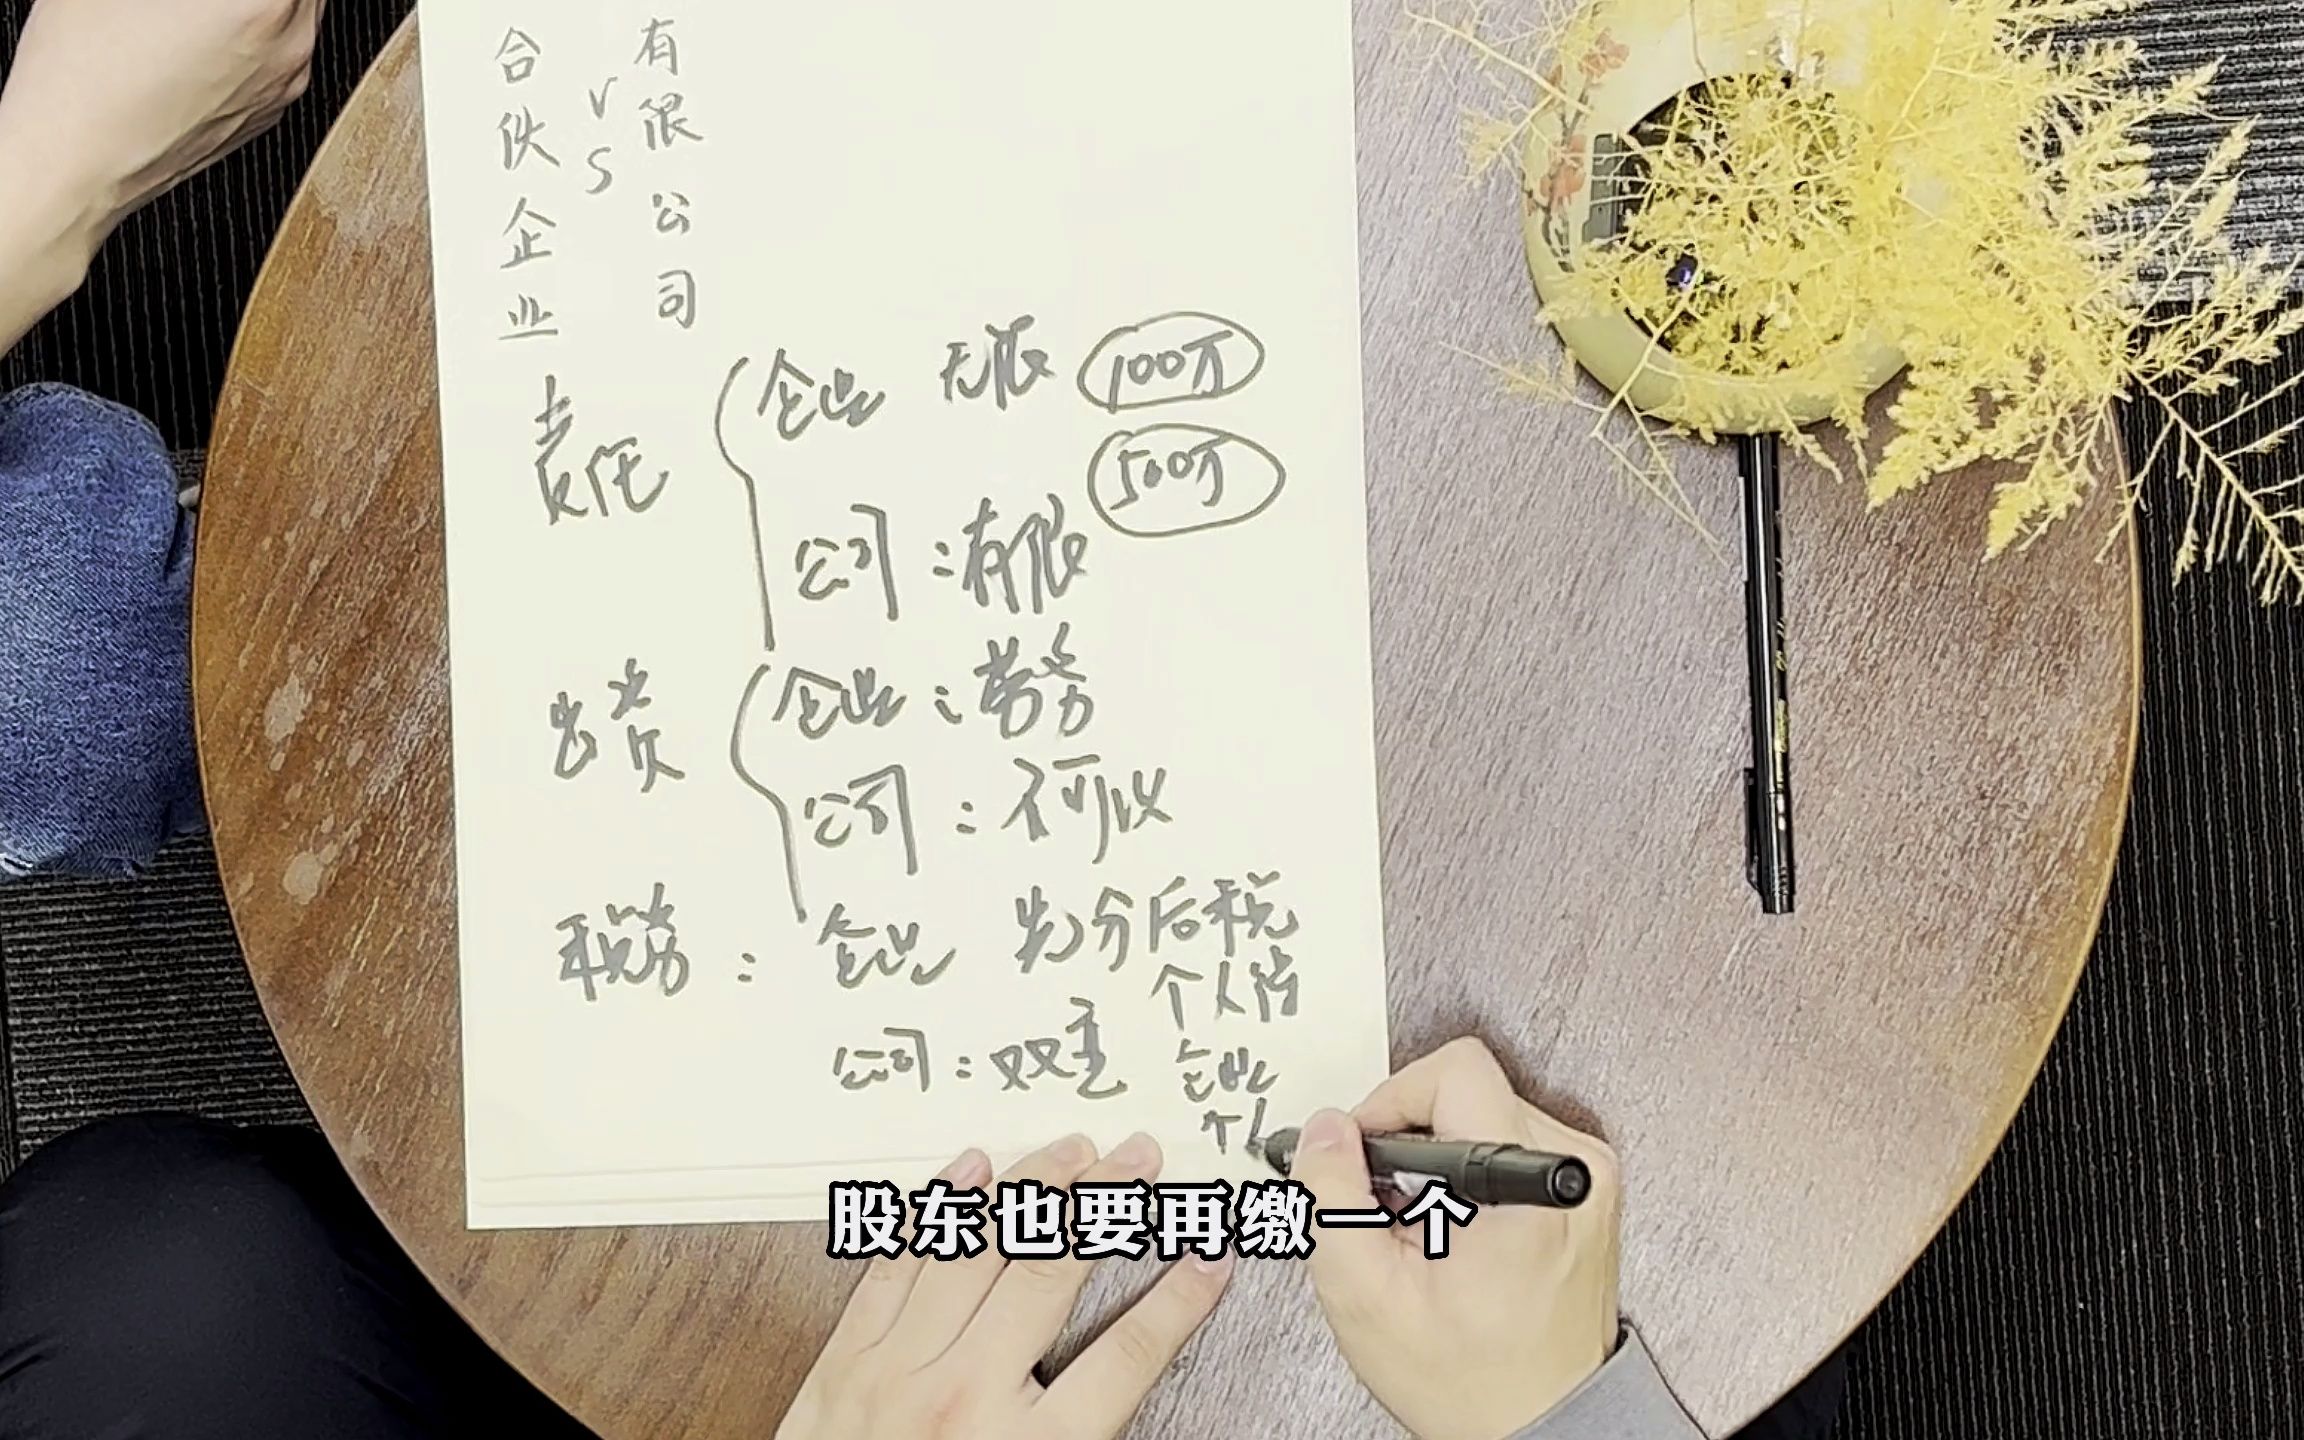 合伙企业
VS
有限公司
责任
企业 无限 100万
500万
公司：有限
出资
企业：劳务
公司：不可以
税务：企业 先分后税
个人待
公司：双重 企业
个人
股东也要再缴一个